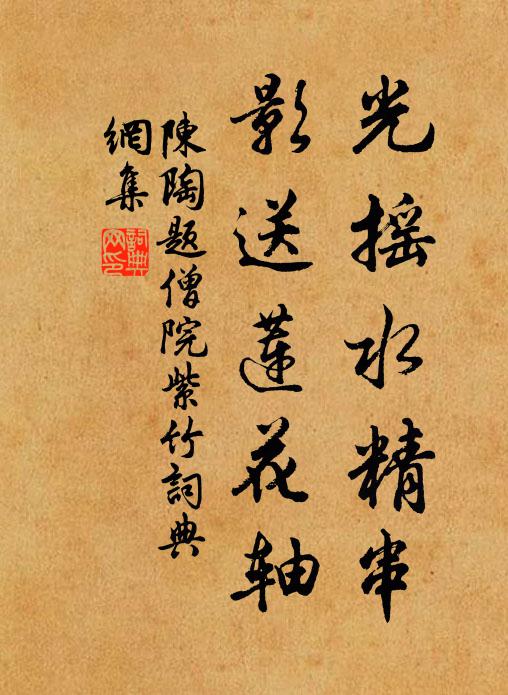 光摇水精串
影送莲花轴
陳陶題僧院紫竹詞典
網集
詞典
网印